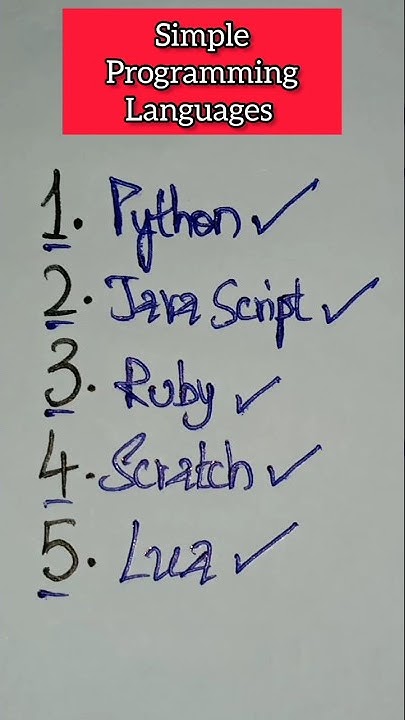 Simple
Programming
Languages
1. Python ✓
2. Java Script ✓
3. Ruby ✓
4. Scratch ✓
5. Lua ✓